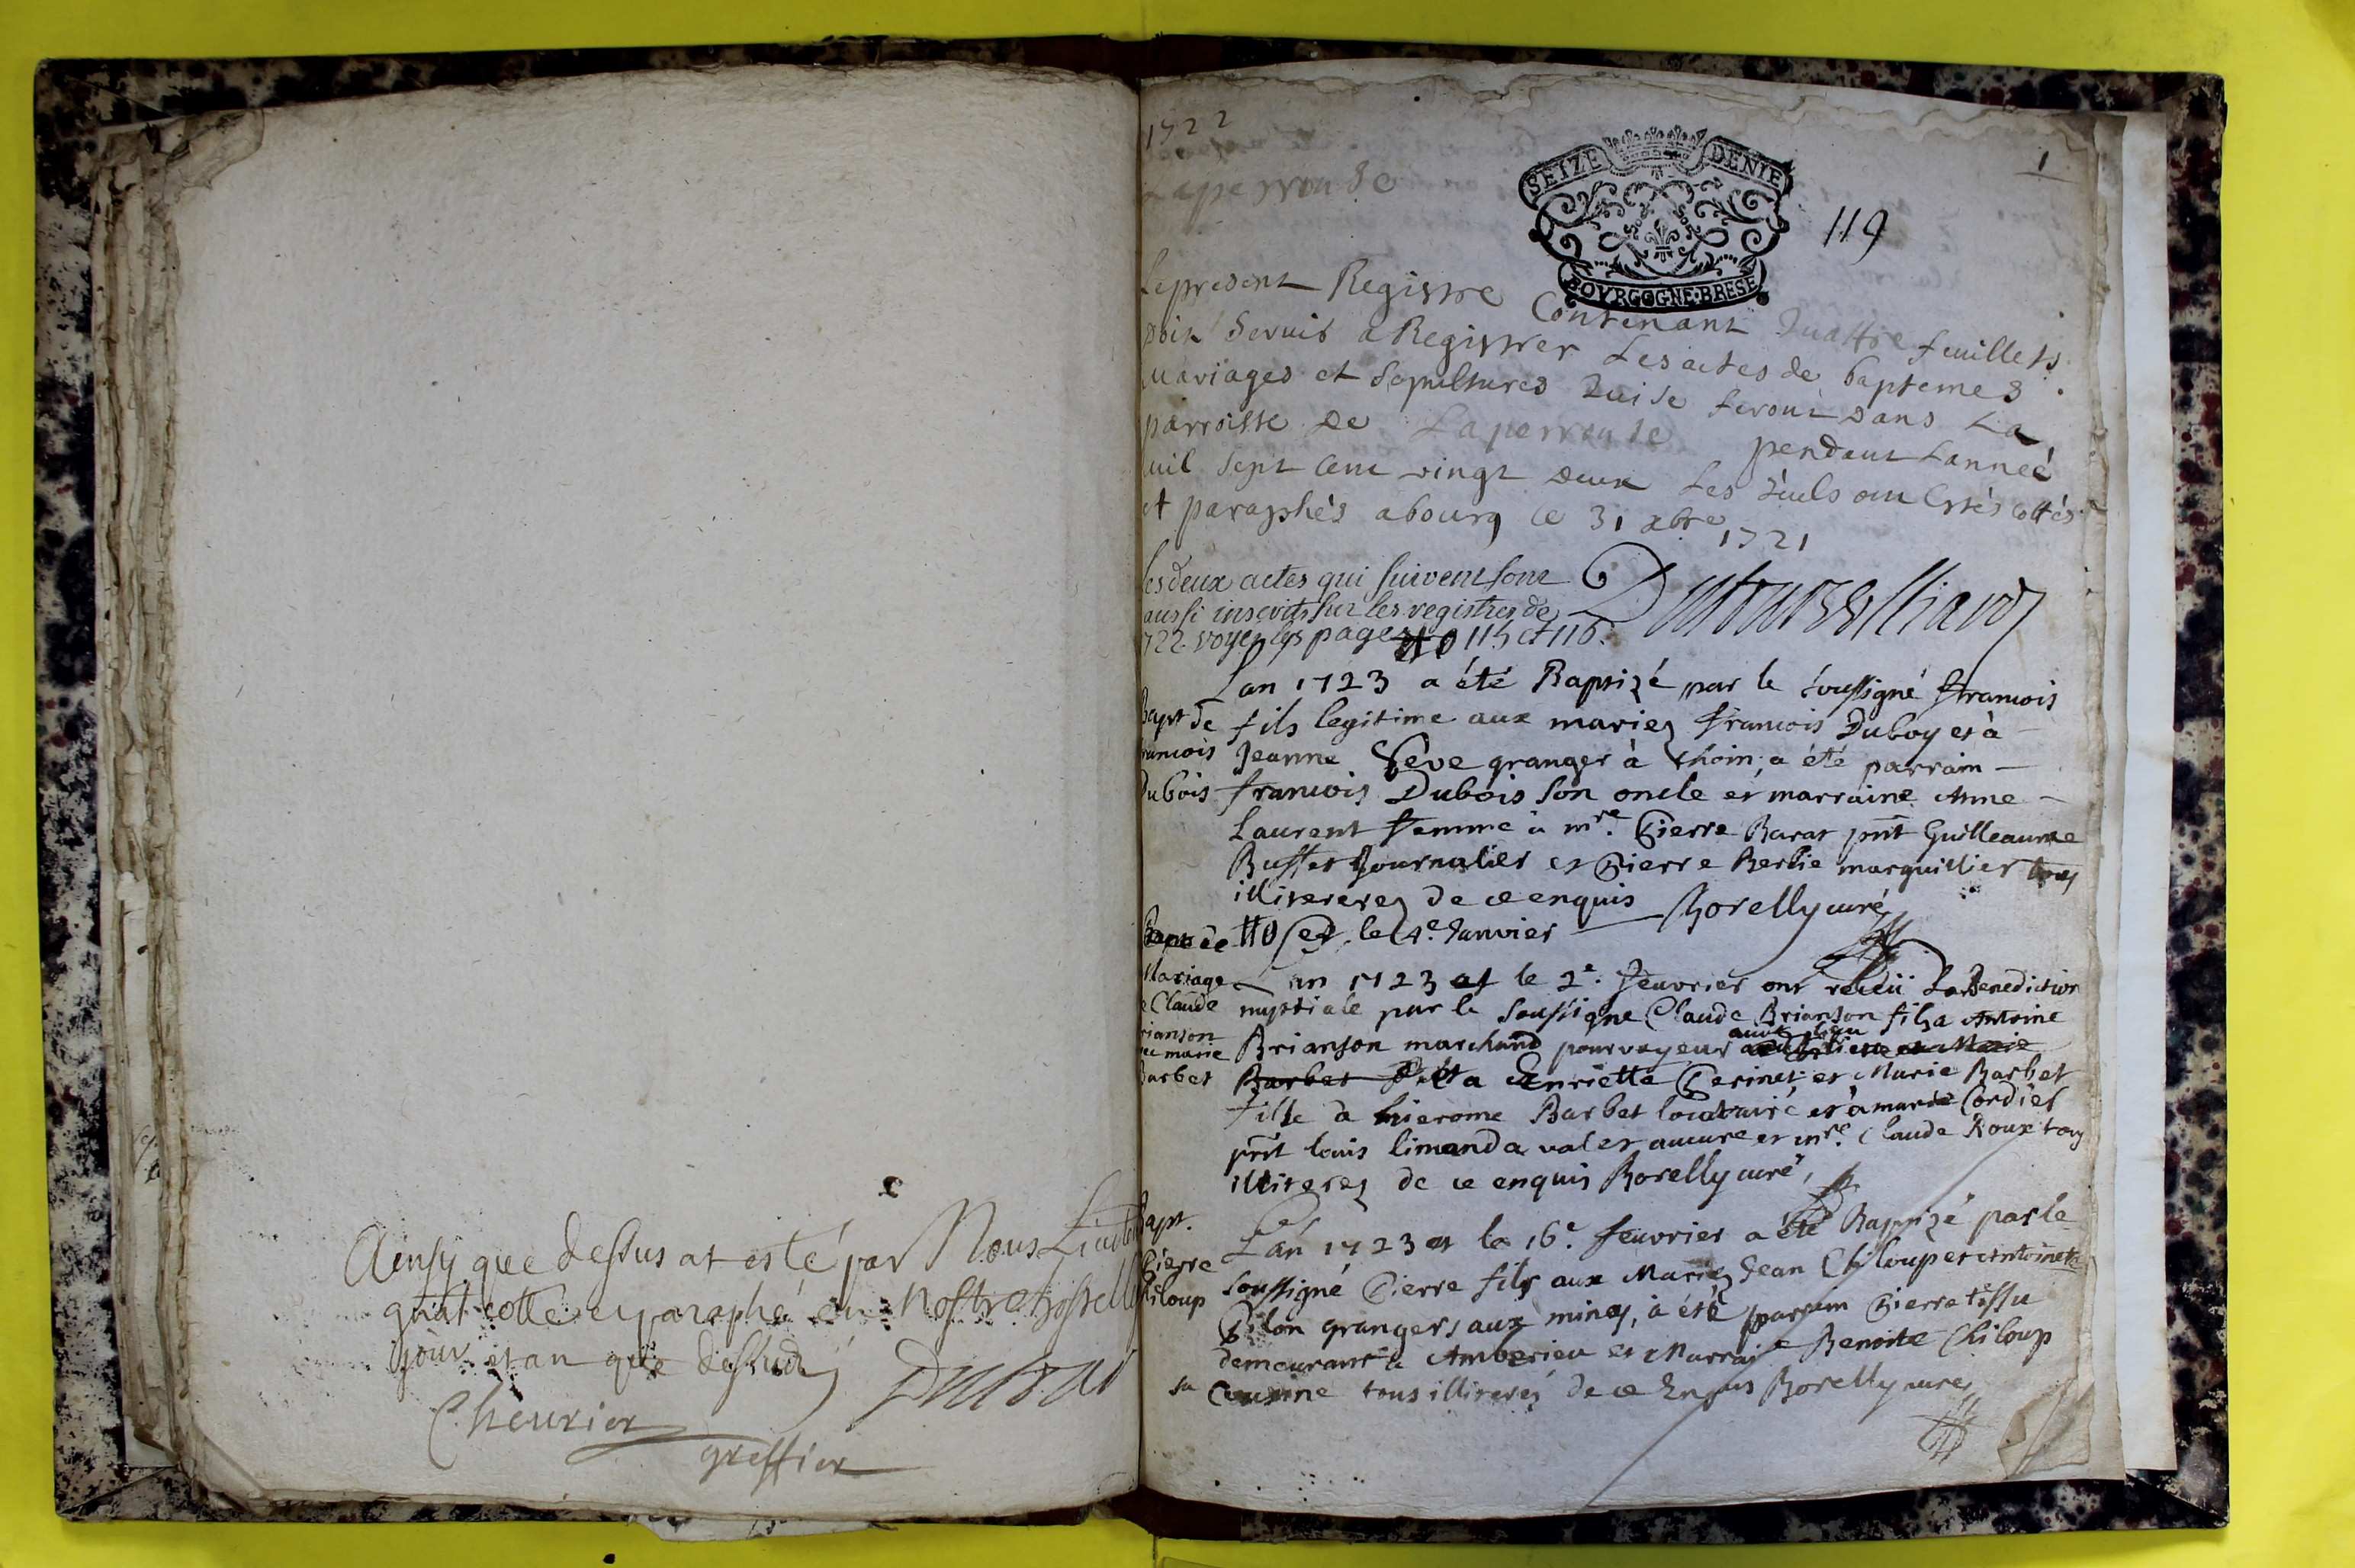 Ainsy que dessus at esté par Nous
cotté et paraphé en nostre hostel
jour et an que dessus
Cheurier
greffier
1722
Laperrouse
1
SEIZE DENIE
BOVRGOGNE·BRESE
119
Le present Registre Contenant Quattre feuillets
doit Servir a Registrer Les actes de baptemes
mariages et Sepultures Qui se feront dans La
parroisse de Laperrouse pendant Lanneé
mil Sept Cent vingt deux Les quels ont Estés Cottés
et paraphés a bourg ce 31 xbre 1721
les deux actes qui suivent sont
aussi inscrits sur les registres de
1722. voyez les pages 115 et 116.
Bapt de
francois
Dubois
Lan 1723 a été Baptizé par le soussigné francois
fils legitime aux mariez francois Duboy et à
Jeanne Seve granger à thoin, a été parrain
francois Dubois son oncle et marraine Anne
Laurent femme à mre. Pierre Barat pnt Guilleaume
Buffet Journalier et Pierre Berlie marguillier tous
illiterez de ce enquis Borelly curé
le 4e. Janvier
Mariage
de Claude
Brianson
et marie
Barbet
Lan 1723 et le 2e. feuvrier ont receü La Benediction
nuptiale par le soussigné Claude Brianson fils a Antoine
Brianson marchand pourvoyeur
Barbet a Enriette Perinet et Marie Barbet
fille à hierome Barbet et a marie Cordier
pnt louis limanda valet et mre. Claude Roux tous
illiterez de ce enquis Borelly curé,
Bapt.
Pierre
Chiloup
Lan 1723 et le 16e. feuvrier a été Baptizé par le
soussigné Pierre fils aux Mariez Jean Chiloup et Antoinette
grangers aux mines, a été parrain Pierre tissu
demeurant à Amberieu et Marraine Benoite Chiloup
sa Cousine tous illiterez de ce Enquis Borelly curé